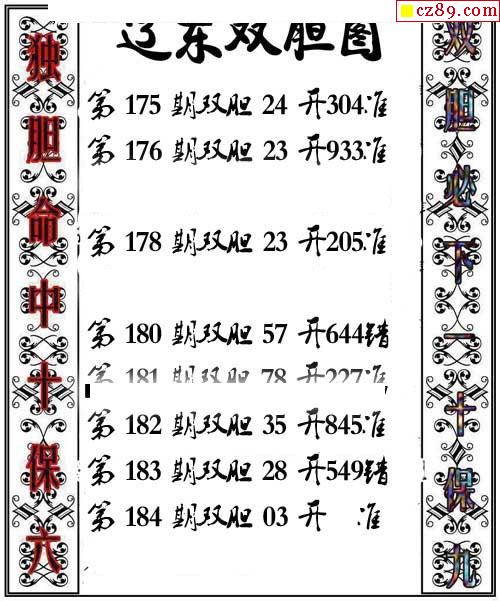 cz89.com
辽东双胆图
独胆命中十保六
第 175 期双胆 24 开304准
第 176 期双胆 23 开933准
第 178 期双胆 23 开205准
第 180 期双胆 57 开644错
第 181 期双胆 78 开227准
第 182 期双胆 35 开845准
第 183 期双胆 28 开549错
第 184 期双胆 03 开 准
双胆必下一十保九